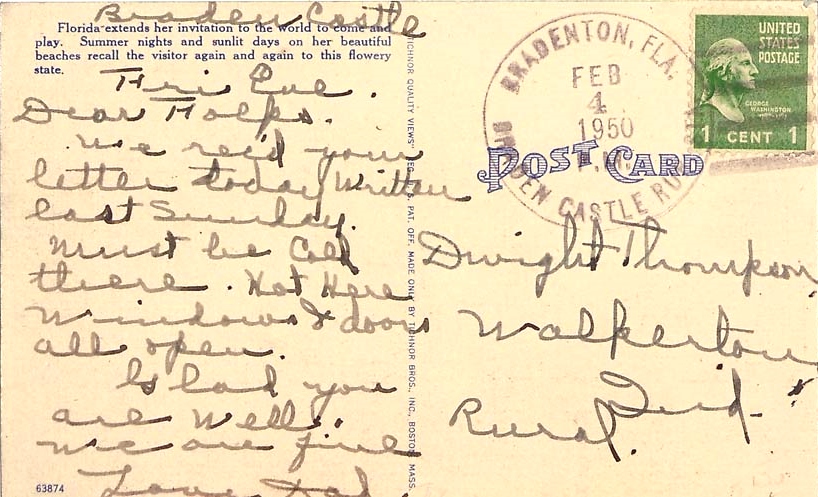 Braden Castle
Florida extends her invitation to the world to come and
play. Summer nights and sunlit days on her beautiful
beaches recall the visitor again and again to this flowery
state.
Fri Eve.
Dear Folks.
We rec'd your
letter today Written
last Sunday.
Must be Cold
there. Hot Here
Windows & doors
all open.
Glad you
are Well.
We are fine
Love
63874
TICHNOR QUALITY VIEWS" REG. U. S. PAT. OFF. MADE ONLY BY TICHNOR BROS., INC., BOSTON, MASS.
BRADENTON, FLA.
FEB
4
1950
BRADEN CASTLE RU
UNITED
STATES
POSTAGE
GEORGE
WASHINGTON
1 CENT 1
POST CARD
Dwight Thompson
Walkerton
Ind.
Rural.